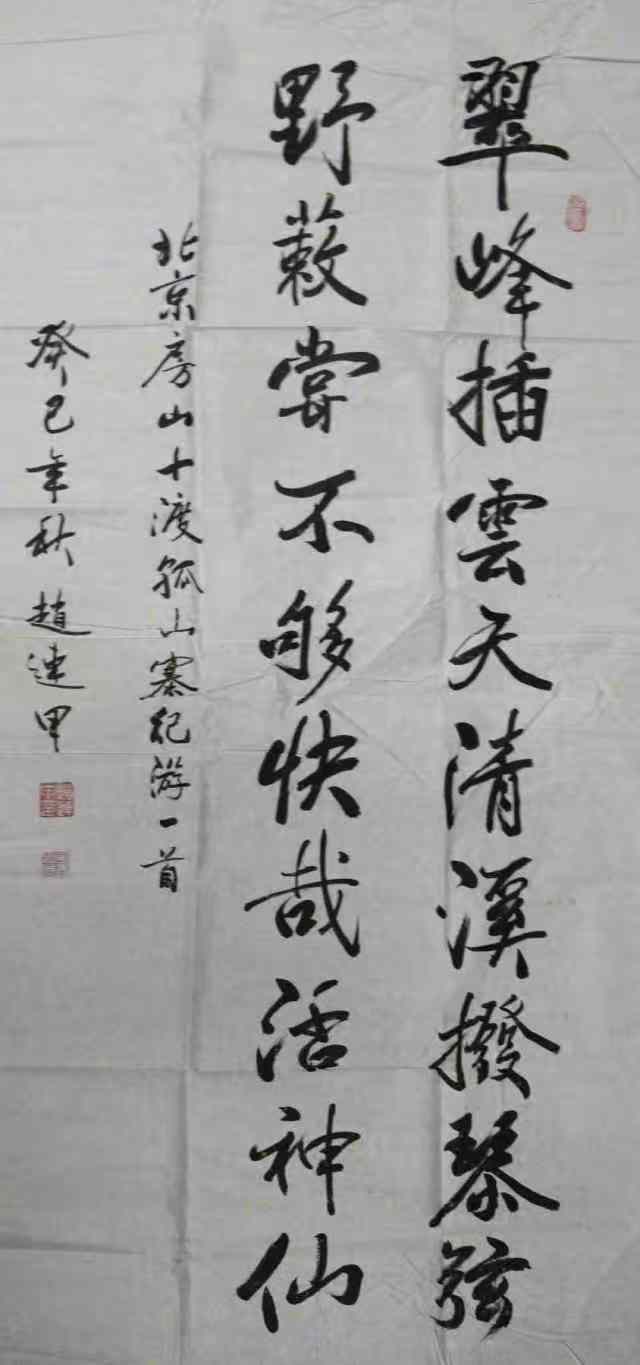 翠峰插雲天清溪撥琴弦
野蔌嘗不够快哉活神仙
北京房山十渡孤山寨紀游一首
癸巳年秋趙連甲